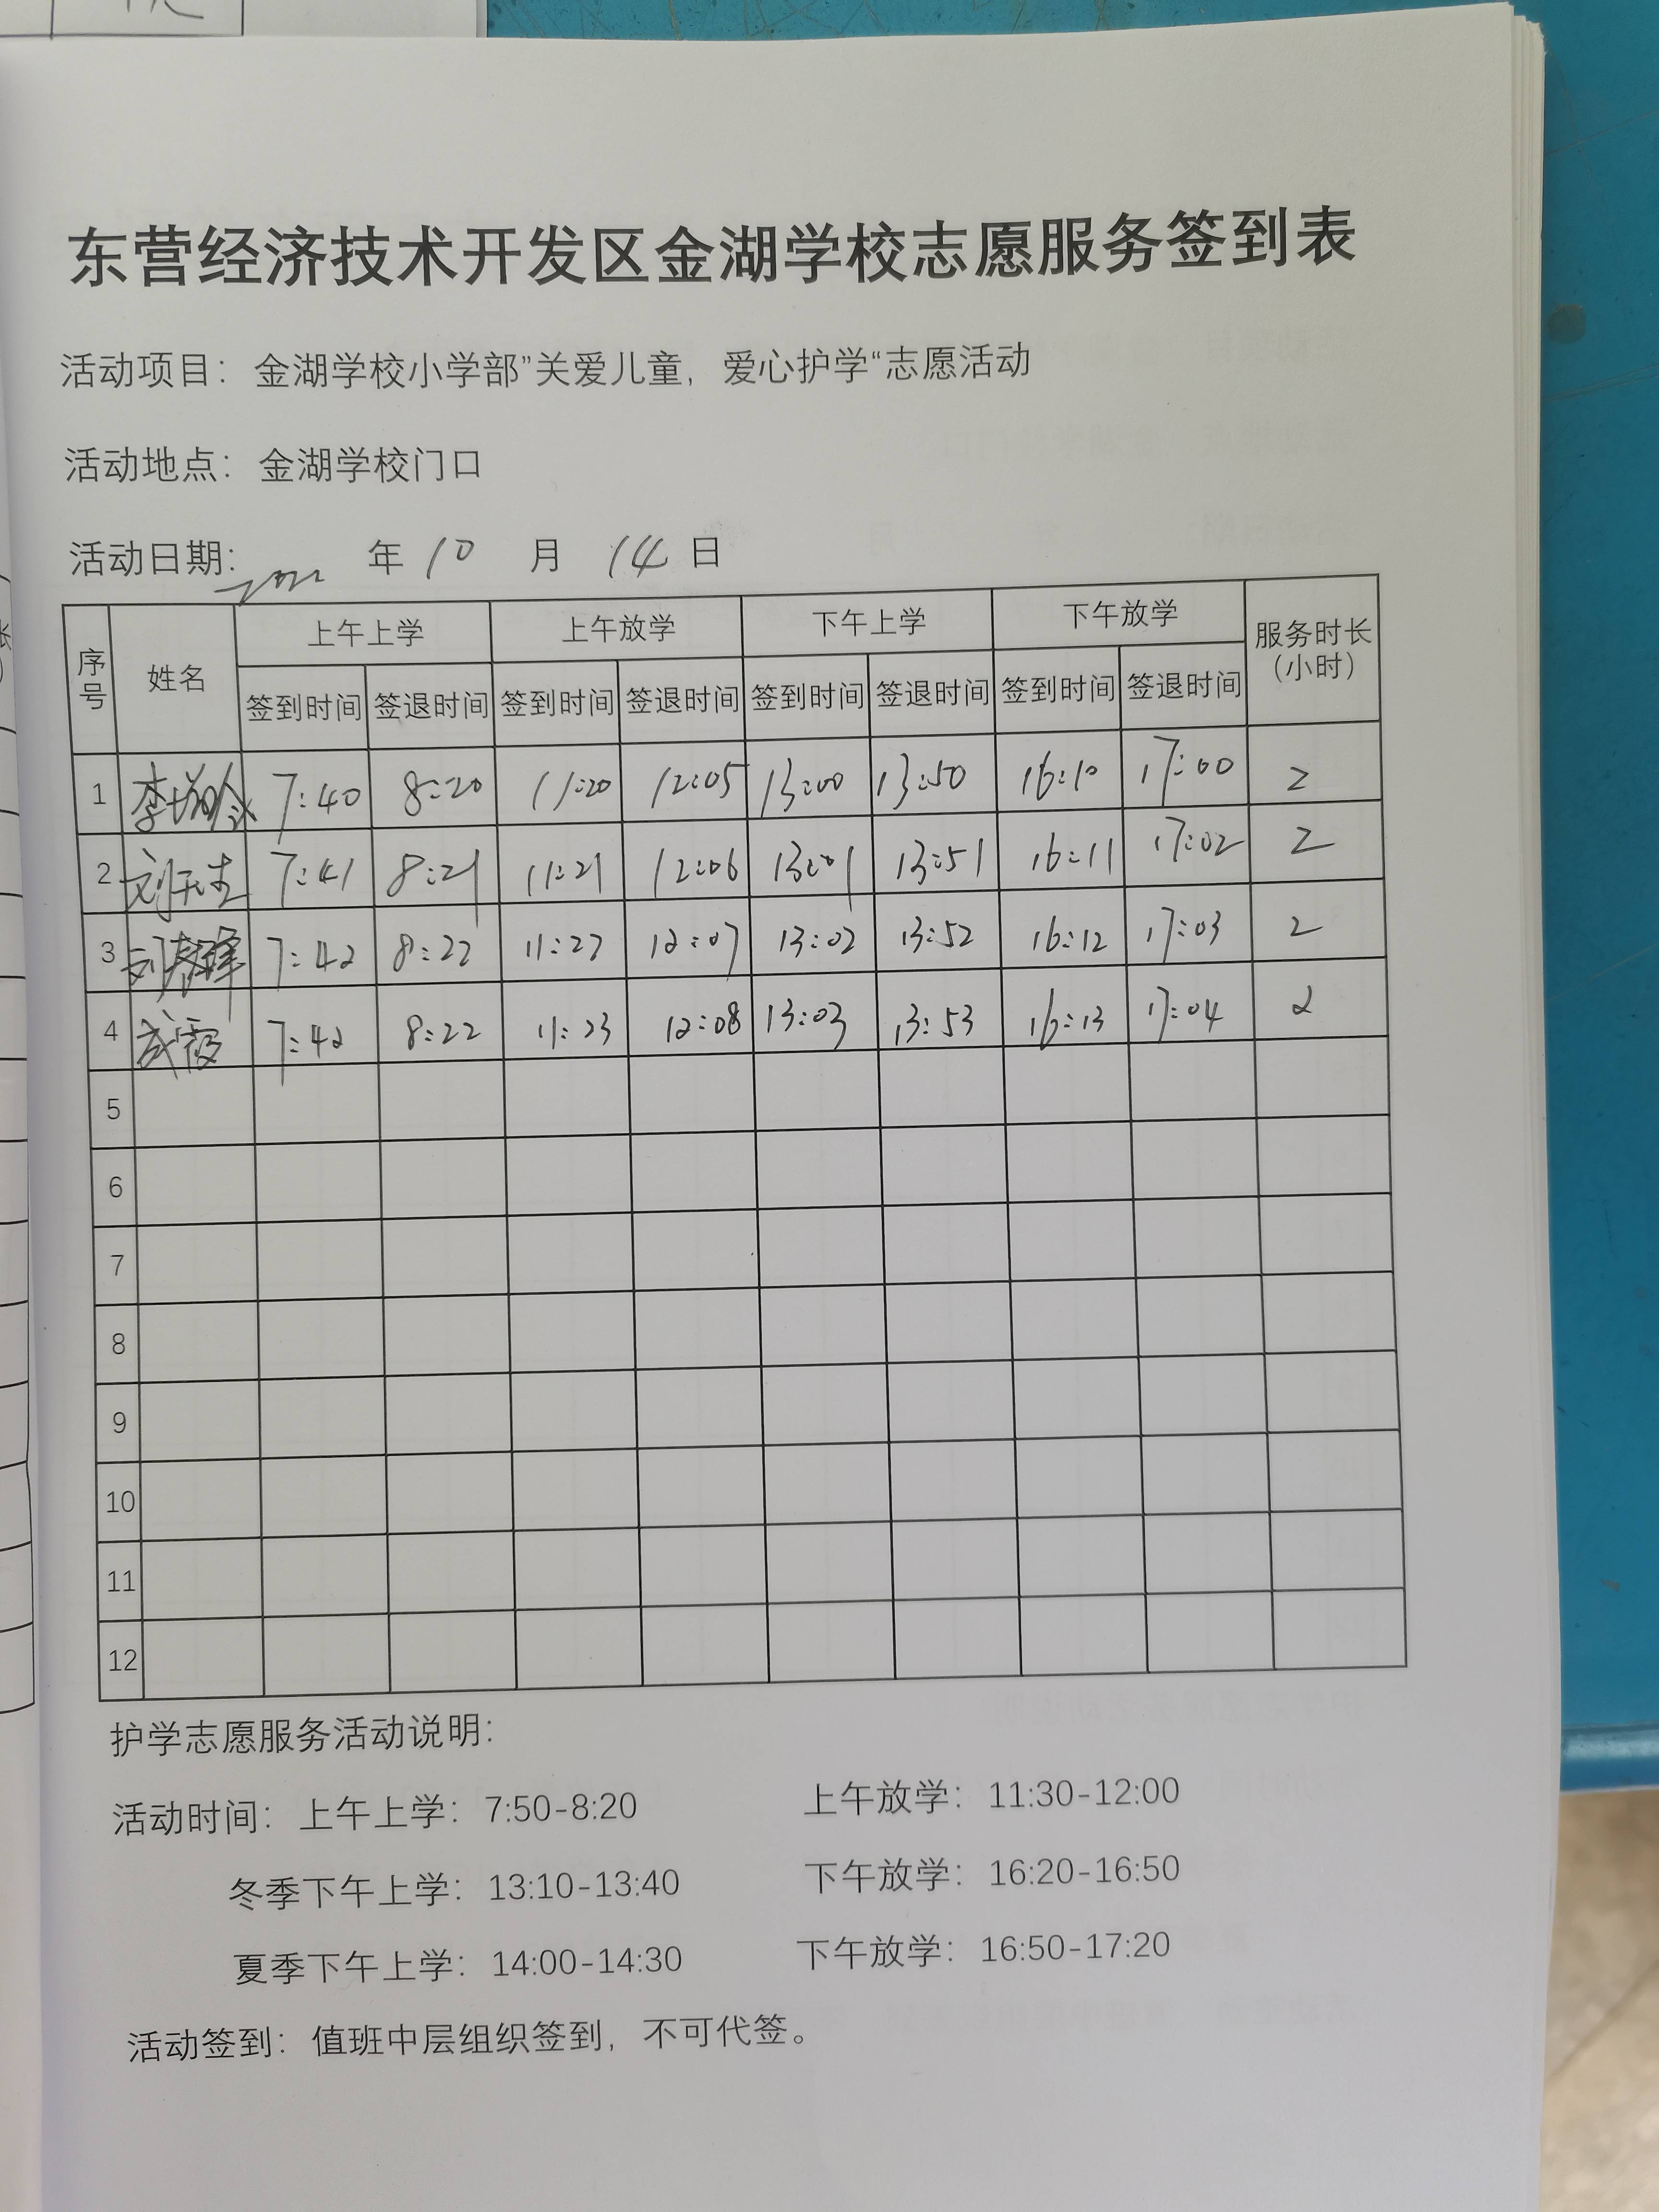 东营经济技术开发区金湖学校志愿服务签到表
活动项目：金湖学校小学部”关爱儿童，爱心护学“志愿活动
活动地点：金湖学校门口
活动日期：2022 年 10 月 14 日
序号 姓名 上午上学 上午放学 下午上学 下午放学 服务时长（小时）
签到时间 签退时间 签到时间 签退时间 签到时间 签退时间 签到时间 签退时间
1 李 7:40 8:20 11:20 12:05 13:00 13:50 16:10 17:00 2
2 刘 7:41 8:21 11:21 12:06 13:01 13:51 16:11 17:02 2
3 刘 7:42 8:22 11:22 12:07 13:02 13:52 16:12 17:03 2
4 武霞 7:42 8:22 11:23 12:08 13:03 13:53 16:13 17:04 2
5
6
7
8
9
10
11
12
护学志愿服务活动说明：
活动时间：上午上学：7:50-8:20 上午放学：11:30-12:00
冬季下午上学：13:10-13:40 下午放学：16:20-16:50
夏季下午上学：14:00-14:30 下午放学：16:50-17:20
活动签到：值班中层组织签到，不可代签。